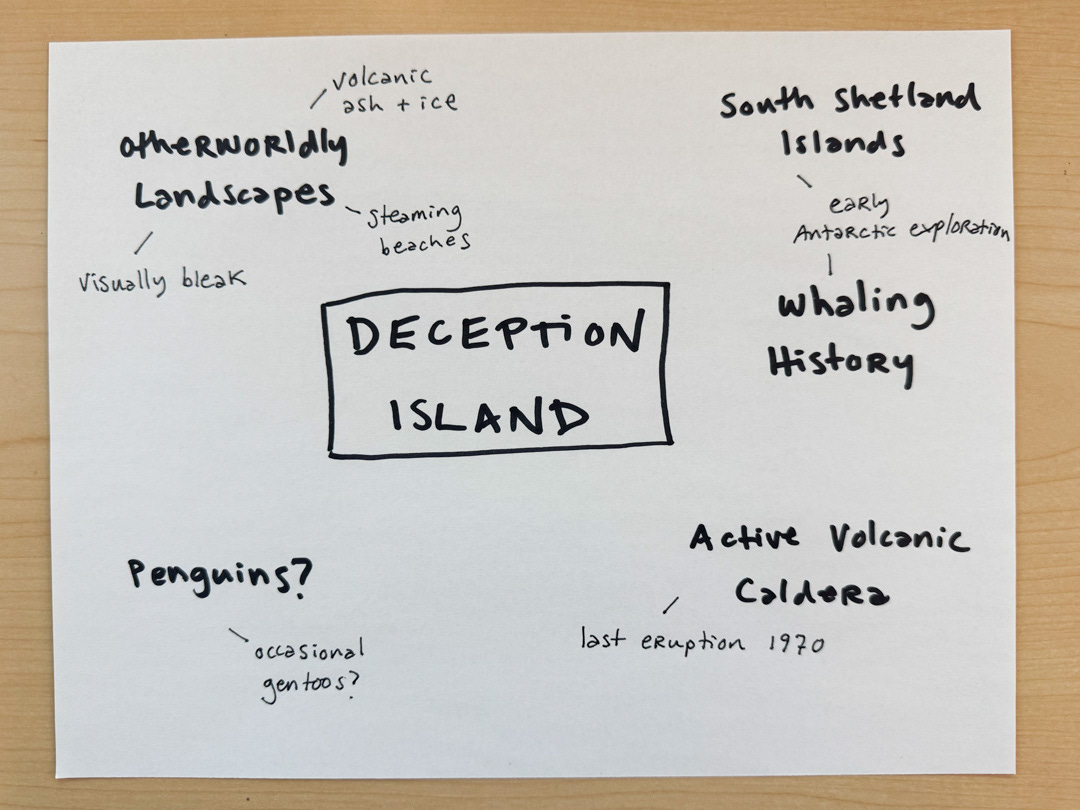 volcanic
ash + ice
Otherworldly
Landscapes
steaming
beaches
visually bleak
South Shetland
Islands
early
Antarctic exploration
Whaling
History
DECEPTION
ISLAND
Penguins?
occasional
gentoos?
Active Volcanic
Caldera
last eruption 1970